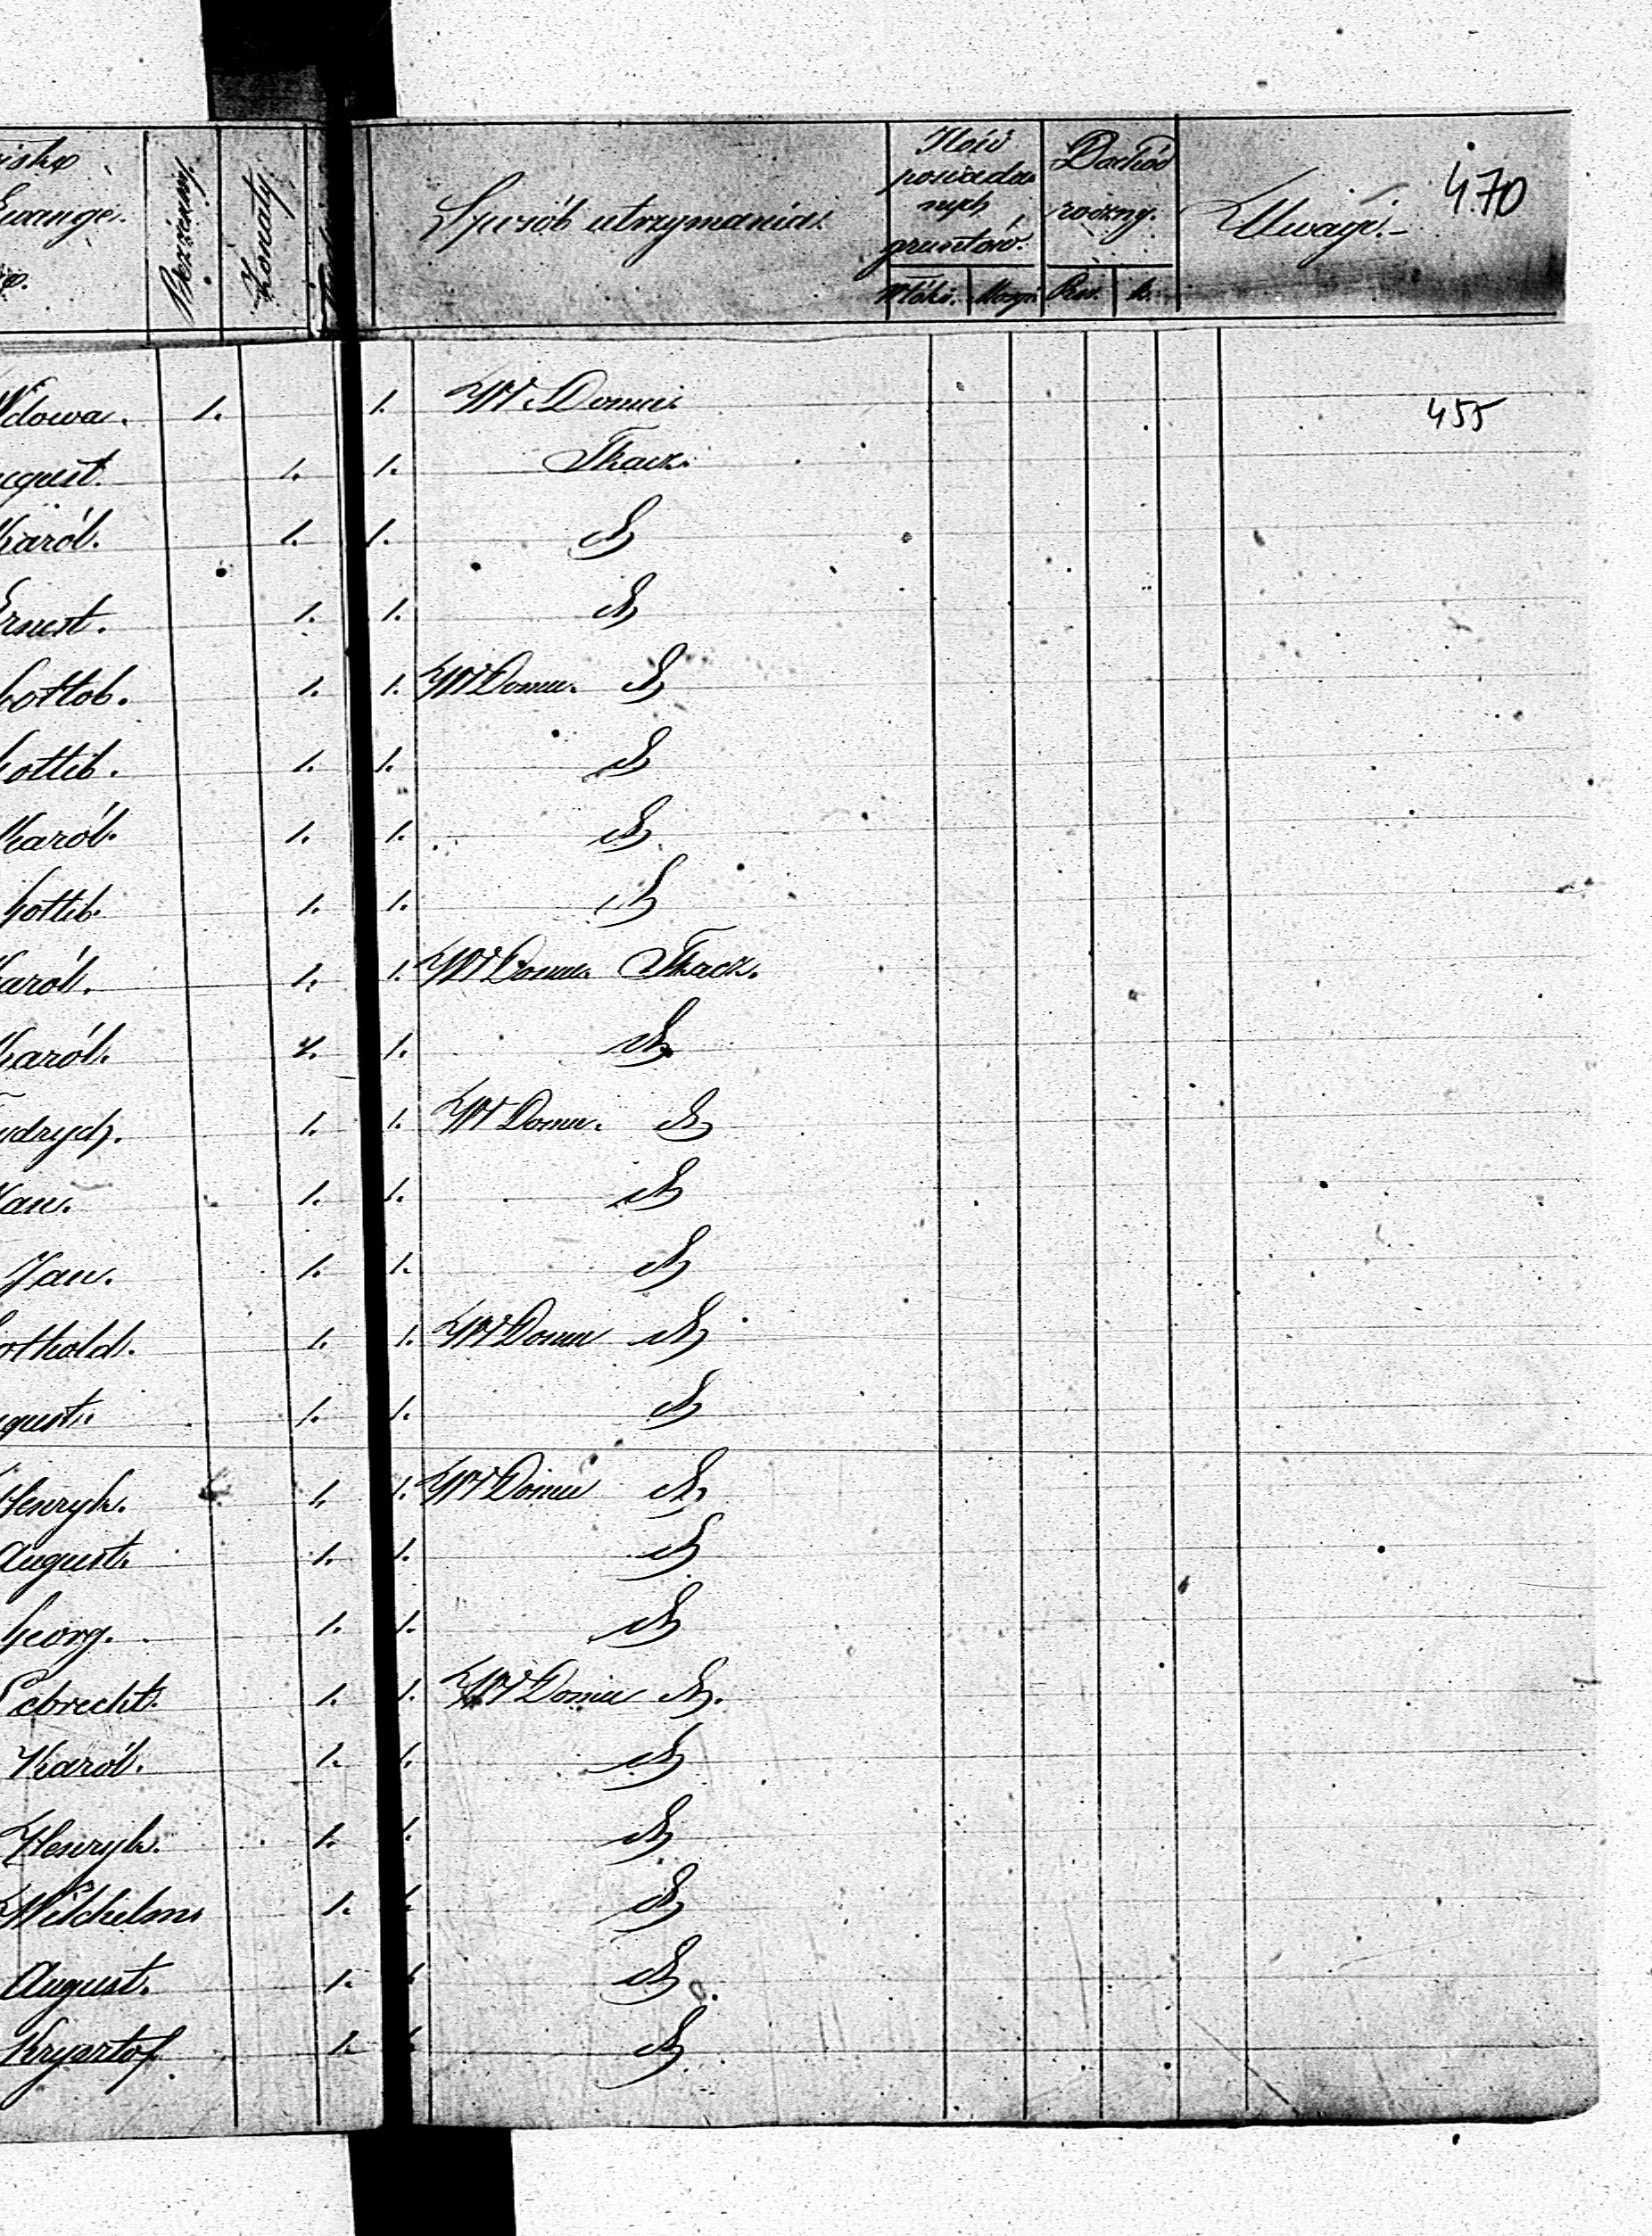 Bezżenny
Żonaty
Sposób utrzymania.
Ilość posiadanych gruntów.
Włók. Morgi
Dochód roczny.
Rsr. k.
Uwagi.-
470
Wdowa. 1. 1. W Domu. 455
August. 1. 1. Tkacz.
Karól. 1. 1. d
Ernest. 1. 1. d
Gottlob. 1. 1. W Domu. d
Gottlib. 1. 1. d
Karól. 1. 1. d
Gottlib. 1. 1. d
Karól. 1. 1. W Domu. Tkacz.
Karól. 1. 1. d
drych. 1. 1. W Domu. d
Jan. 1. 1. d
Jan. 1. 1. d
othold. 1. 1. W Domu d
gust. 1. 1. d
Henryk. 1. 1. W Domu d
August. 1. 1. d
Georg. 1. 1. d
Lebrecht. 1. 1. W Domu d.
Karól. 1. 1. d
Henryk. 1. 1. d
Wilchelm 1. d
August. 1. d
Krysztof. 1. d